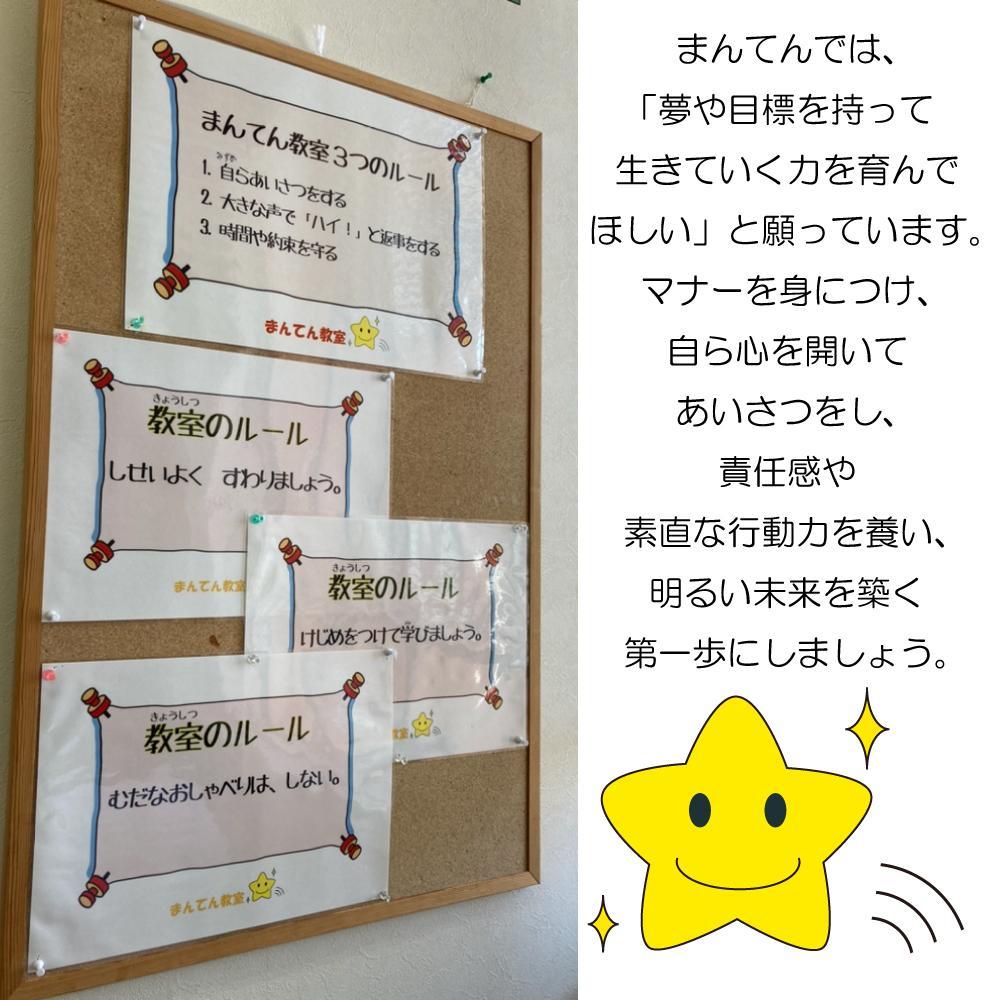 まんてん教室3つのルール
みずか
1. 自らあいさつをする
2. 大きな声で「ハイ！」と返事をする
3. 時間や約束を守る
まんてん教室
きょうしつ
教室のルール
しせいよく　すわりましょう。
まんてん教室
きょうしつ
教室のルール
けじめをつけて学びましょう。
きょうしつ
教室のルール
むだなおしゃべりは、しない。
まんてん教室
まんてんでは、
「夢や目標を持って
生きていく力を育んで
ほしい」と願っています。
マナーを身につけ、
自ら心を開いて
あいさつをし、
責任感や
素直な行動力を養い、
明るい未来を築く
第一歩にしましょう。